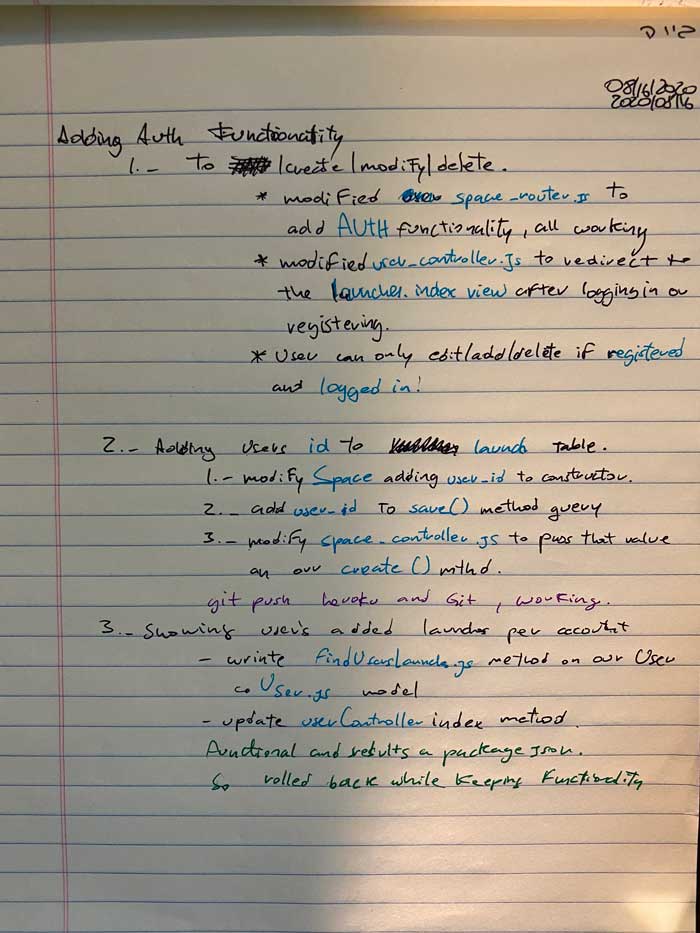 08/16/2020
2020/08/16
Adding Auth Functionality
1.- To /create/modify/delete.
* modified space_router.js to
add AUTH functionality, all working
* modified user_controller.js to redirect to
the launches.index view after logging in or
registering.
* User can only edit/add/delete if registered
and logged in!
2.- Adding users id to launch table.
1.- modify Space adding user_id to constructor.
2.- add user_id to save() method query
3.- modify space_controller.js to pass that value
on our create() mthd.
git push heroku and Git, working.
3.- Showing user's added launches per account
- wrinte findUsersLaunchs.js method on our User
User.js model
- update userController index method.
Functional and results a package json.
So rolled back while keeping functionality